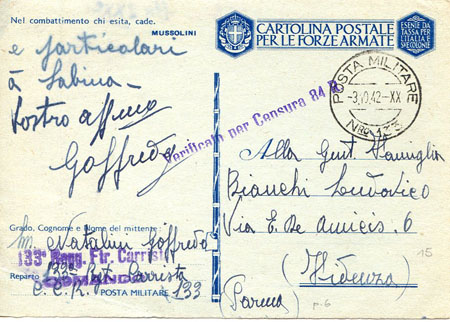 Nel combattimento chi esita, cade.
MUSSOLINI
e particolari
a Sabina
Vostro affmo
Goffredo
Grado, Cognome e Nome del mittente:
Natalini Goffredo
133° Regg. Ftr. Carrista
Reparto 133° Rgt Carrista
COMANDO
C. C. R. POSTA MILITARE 133
CARTOLINA POSTALE
PER LE FORZE ARMATE
ESENTE DA
TASSA PER
L'ITALIA E
SUE COLONIE
POSTA MILITARE
-3.10.42-XX
Nro 133
Verificato per Censura 84 R
Alla Gent. Famiglia
Bianchi Lodovico
Via E. De Amicis. 6
15
(Fidenza)
(Parma) p.6